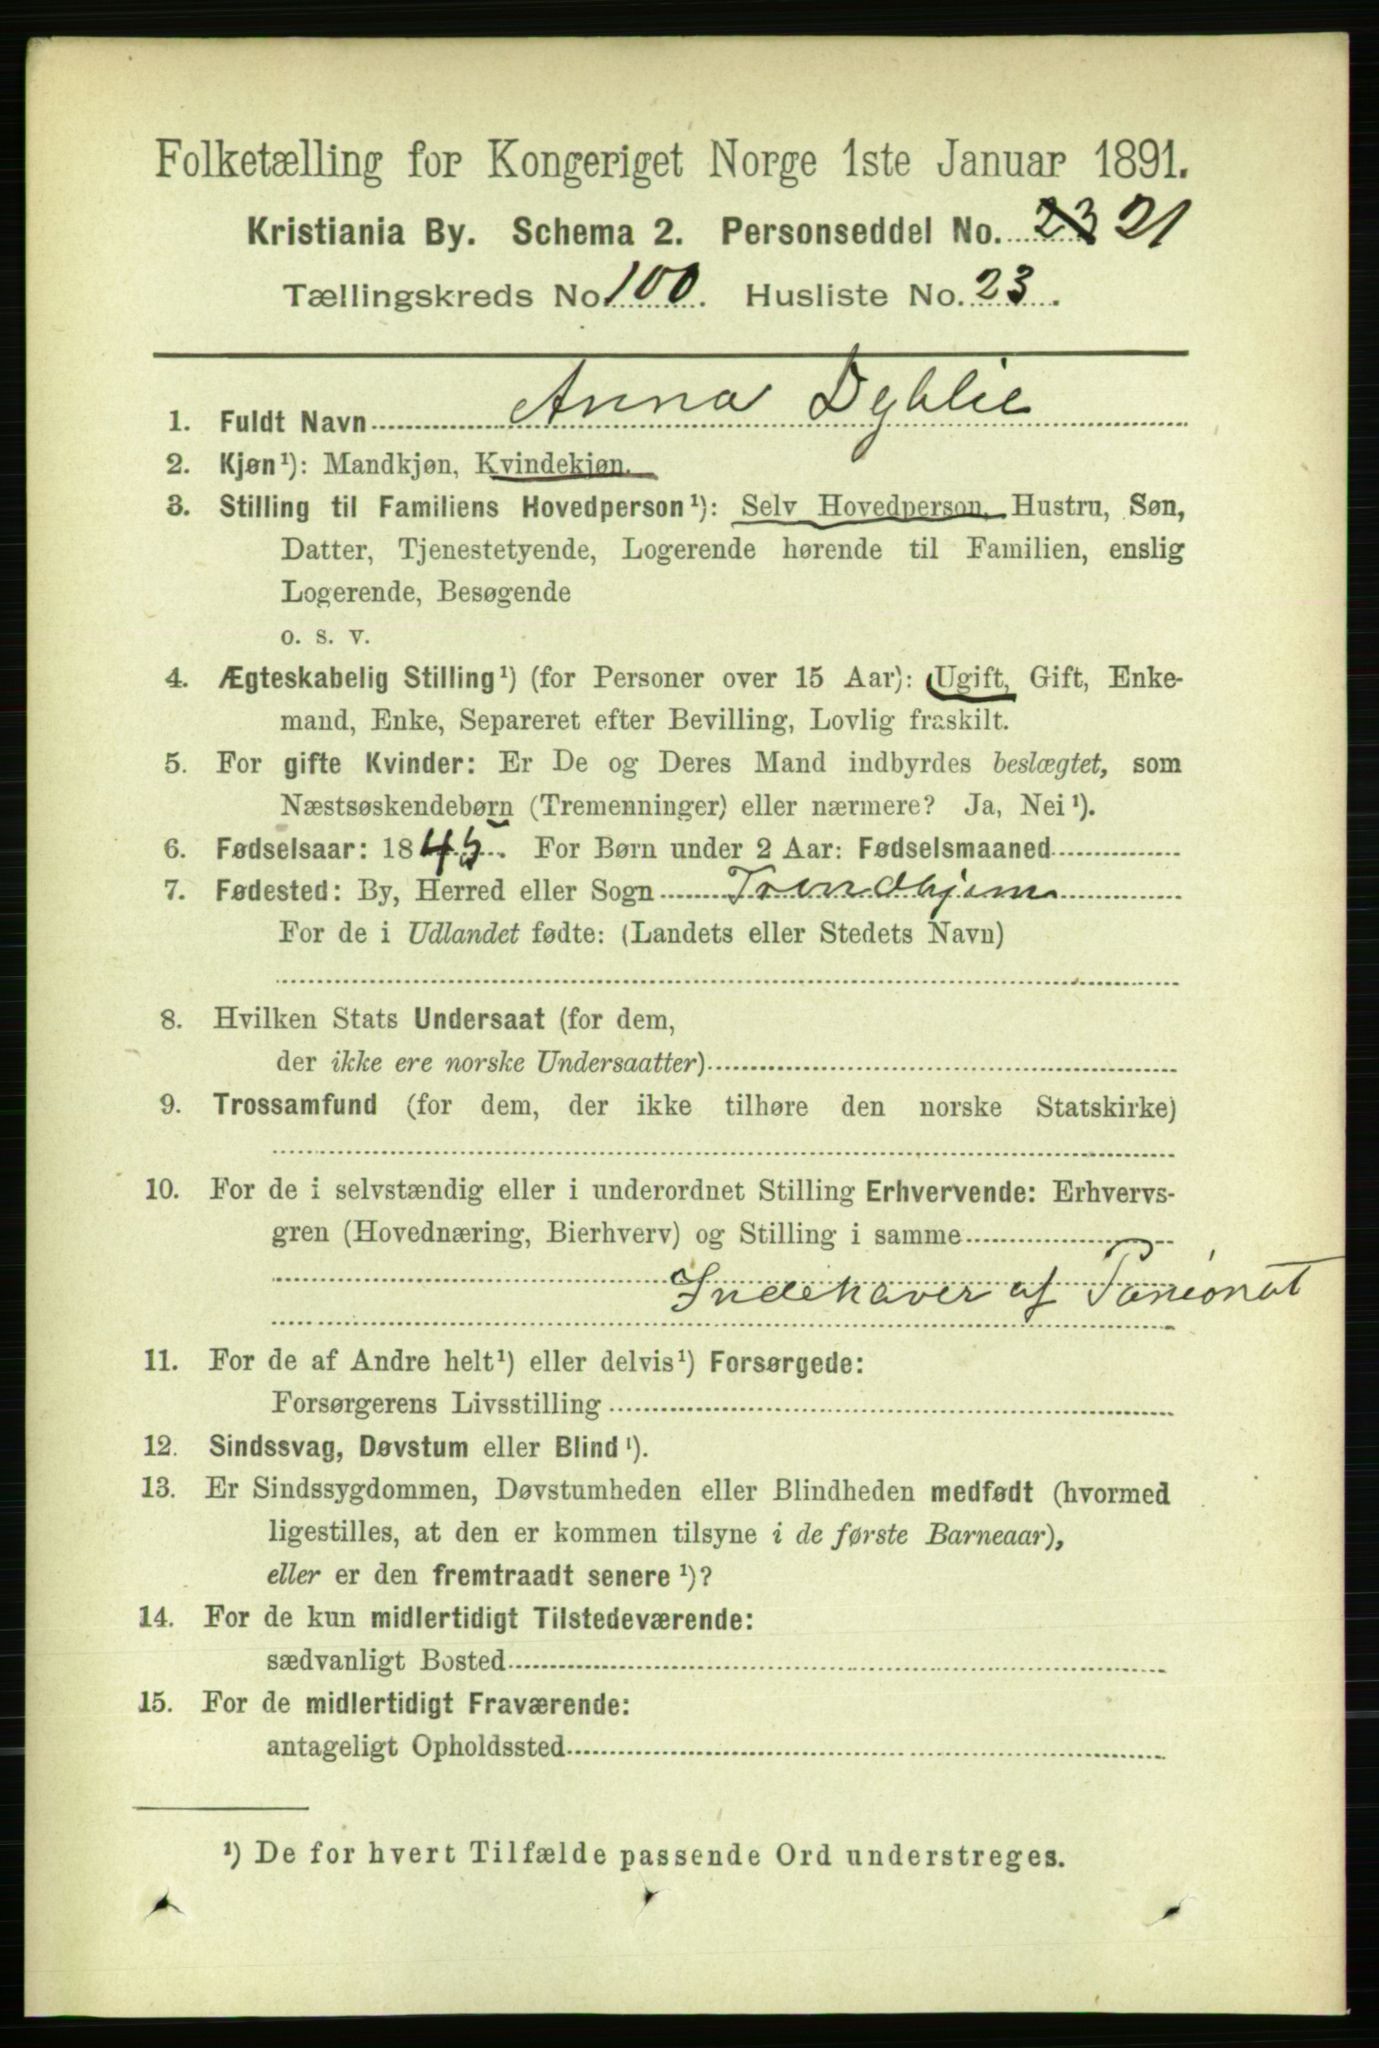 Folketælling for Kongeriget Norge 1ste Januar 1891.
Kristiania By. Schema 2. Personseddel No. 23 21
Tællingskreds No. 100. Husliste No. 23.
1. Fuldt Navn Anna Dyblie
2. Kjøn¹): Mandkjøn, Kvindekjøn.
3. Stilling til Familiens Hovedperson¹): Selv Hovedperson, Hustru, Søn,
Datter, Tjenestetyende, Logerende hørende til Familien, enslig
Logerende, Besøgende
o. s. v.
4. Ægteskabelig Stilling¹) (for Personer over 15 Aar): Ugift, Gift, Enke-
mand, Enke, Separeret efter Bevilling, Lovlig fraskilt.
5. For gifte Kvinder: Er De og Deres Mand indbyrdes beslægtet, som
Næstsøskendebørn (Tremenninger) eller nærmere? Ja, Nei¹).
6. Fødselsaar: 1845. For Børn under 2 Aar: Fødselsmaaned
7. Fødested: By, Herred eller Sogn Trondhjem
For de i Udlandet fødte: (Landets eller Stedets Navn)
8. Hvilken Stats Undersaat (for dem,
der ikke ere norske Undersaatter)
9. Trossamfund (for dem, der ikke tilhøre den norske Statskirke)
10. For de i selvstændig eller i underordnet Stilling Erhvervende: Erhvervs-
gren (Hovednæring, Bierhverv) og Stilling i samme
Indehaver af Pansionat
11. For de af Andre helt¹) eller delvis¹) Forsørgede:
Forsørgerens Livsstilling
12. Sindssvag, Døvstum eller Blind¹).
13. Er Sindssygdommen, Døvstumheden eller Blindheden medfødt (hvormed
ligestilles, at den er kommen tilsyne i de første Barneaar),
eller er den fremtraadt senere¹)?
14. For de kun midlertidigt Tilstedeværende:
sædvanligt Bosted
15. For de midlertidigt Fraværende:
antageligt Opholdssted
¹) De for hvert Tilfælde passende Ord understreges.